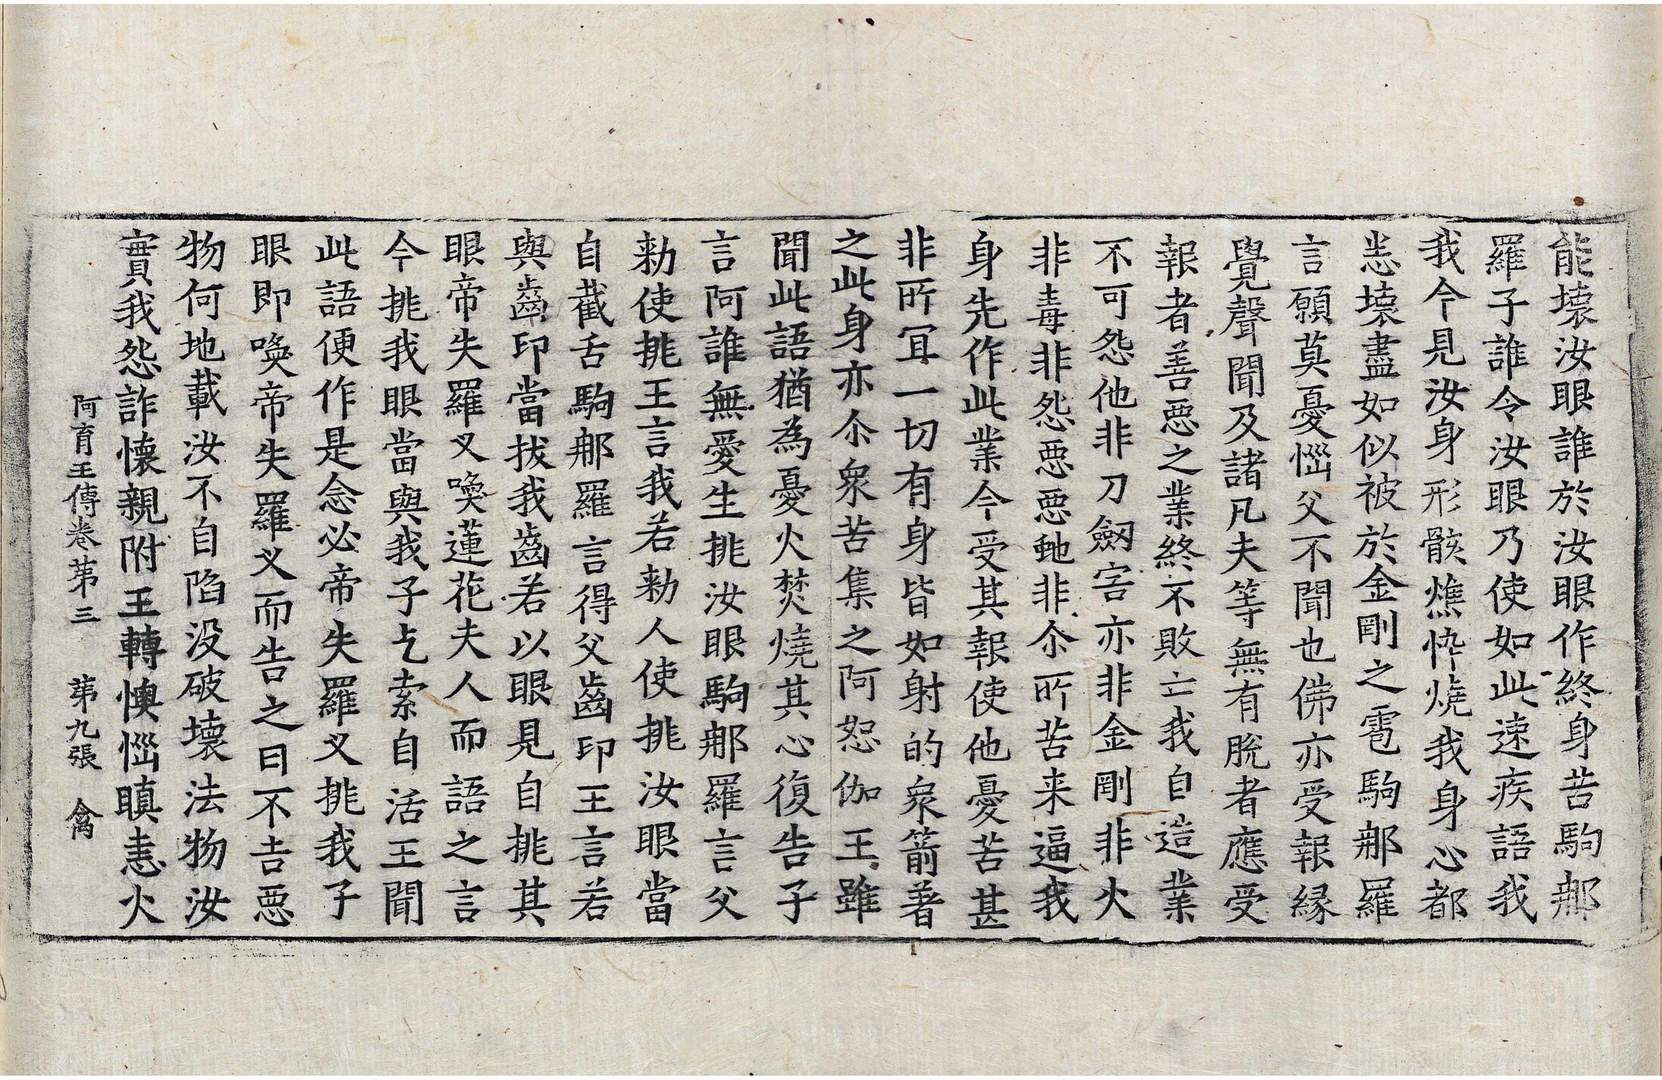 能壞汝眼誰於汝眼作終身苦駒郍
羅子誰令汝眼乃使如此速疾語我
我今見汝身形骸燋悴燒我身心都
恙壊盡如似被於金剛之雹駒郍羅
言願莫憂惱父不聞也佛亦受報縁
覺聲聞及諸凡夫等無有脫者應受
報者善惡之業終不敗亡我自造業
不可怨他非刀劔害亦非金剛非火
非毒非怨惡惡虵非尒所苦来逼我
身先作此業今受其報使他憂苦甚
非所冝一切有身皆如射的衆箭著
之此身亦尒衆苦集之阿恕伽王雖
聞此語猶為憂火焚燒其心復告子
言阿誰無愛生挑汝眼駒郍羅言父
勑使挑王言我若勑人使挑汝眼當
自截舌駒郍羅言得父齒印王言若
與齒印當拔我齒若以眼見自挑其
眼帝失羅叉喚蓮花夫人而語之言
今挑我眼當與我子乞索自活王聞
此語便作是念必帝失羅叉挑我子
眼即喚帝失羅叉而告之曰不吉惡
物何地載汝不自陷没破壞法物汝
實我怨詐懐親附王轉懊惱瞋恚火
阿育王傳卷第三　第九張　禽